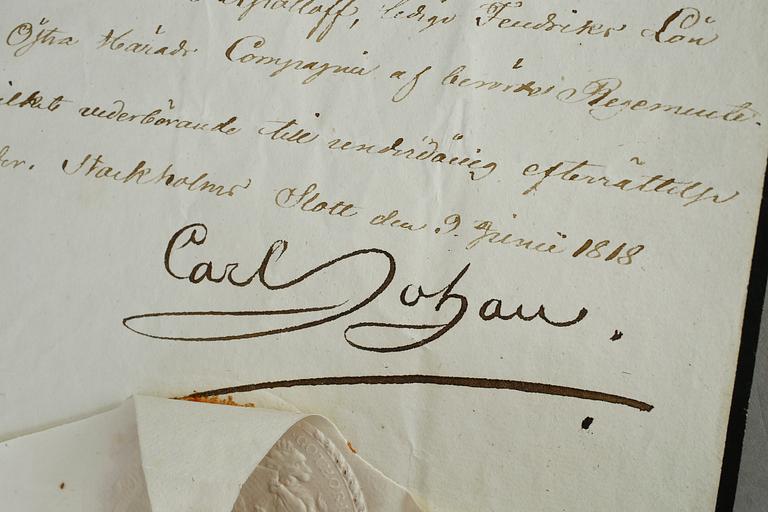 lediga Fendriks Lön
Östra Härads Compagnie af berörde Regemente.
vederbörande till underdånig efterrättelse
Stockholms Slott den 9 Junii 1818.
Carl Johan.